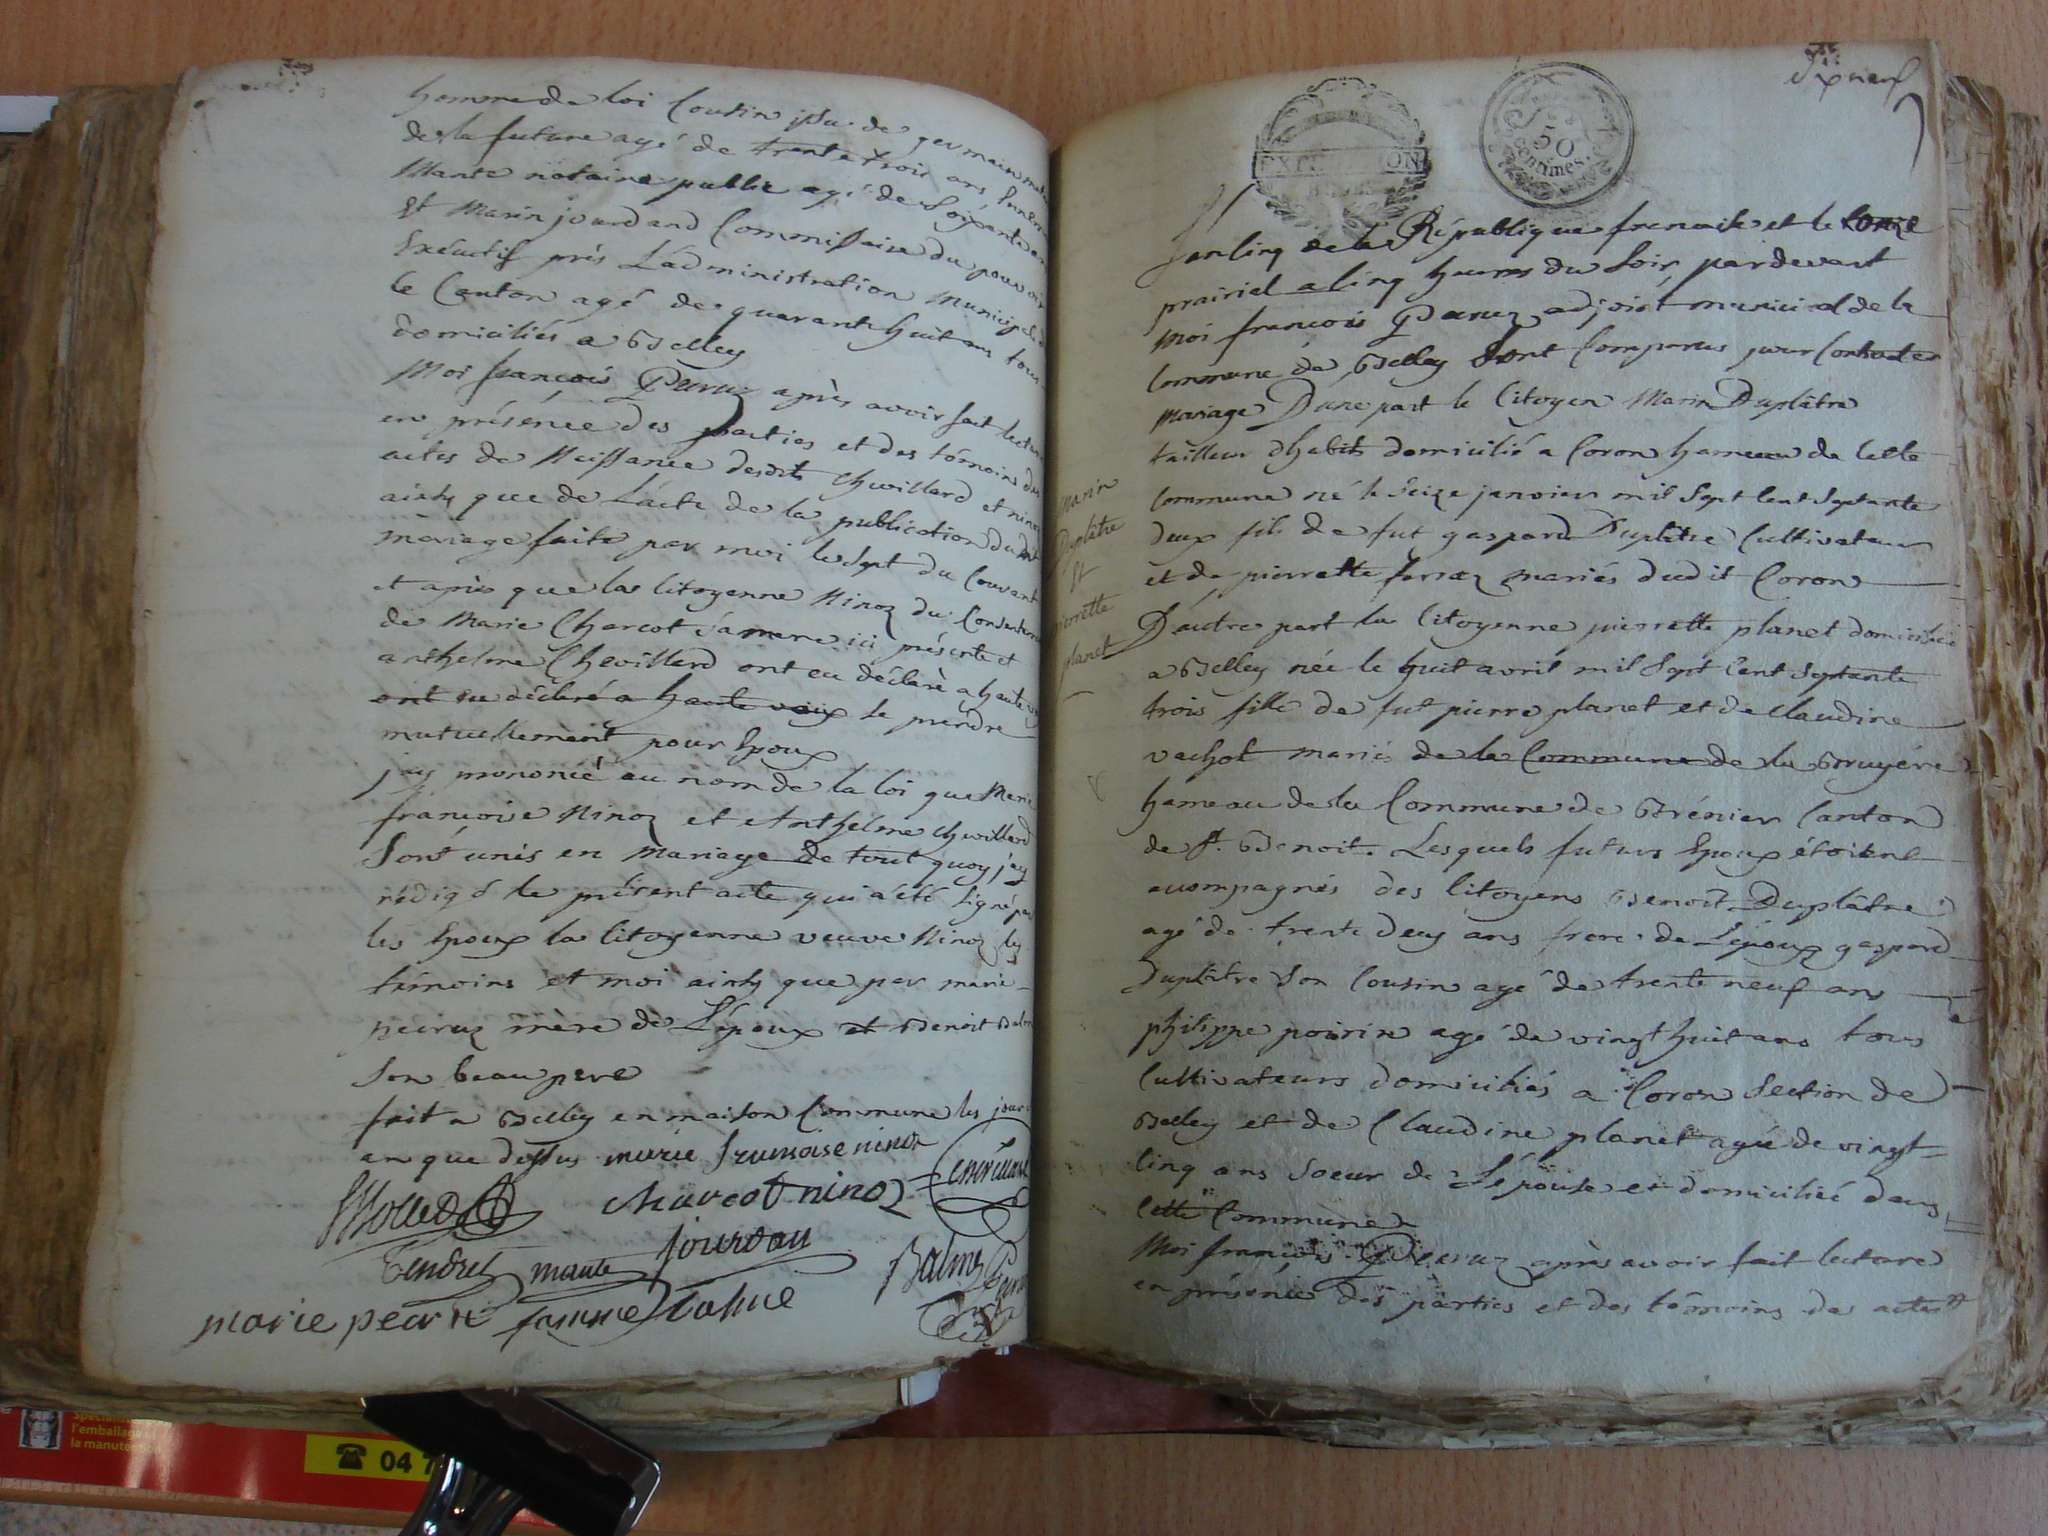 homme de loi Cousin issu de germain
de la future agé de trente trois ans,
Mante notaire public agé de Soixante
et Marin jourdand Commissaire du pouvoir
Exécutif près Ladministration Municipale
le Canton agé de quarante huit ans tous
domiciliés a Belley
Moi françois Peruz après avoir fait lecture
en présence des parties et des témoins des
actes de Naissance desdits Chevillard et ninoz
ainsy que de Lacte de la publication dudit
mariage faite par moi le Sept du Courant
et après que la Citoyenne Ninoz du Consentement
de Marie Charcot sa mere ici présente et
anthelme Chevillard ont eu déclaré a haute voix
ont eu déclaré a haute voix se prendre
mutuellement pour Epoux
j'ay prononcé au nom de la loi que Marie
françoise Ninoz et Anthelme Chevillard
Sont unis en Mariage de tout quoy j'ay
rédigé le présent acte qui a été Signé par
les Epoux la Citoyenne veuve Ninoz les
témoins et moi ainsy que par marie
peiruz mère de L'époux et Benoit
Son beau pere
fait a Belley en maison Commune les jour
an que dessus marie francoise ninoz
charcot ninoz
Tendret mante jourdan
marie femme
dix neuf
EXPÉDITION
50
centimes.
Lan Cinq de la République francaise et le onze
prairial a Cinq heures du Soir, pardevant
Moi françois Peruz adjoint municipal de la
Commune de Belley Sont Comparus pour Contracter
Mariage Dune part le Citoyen Marin Duplâtre
tailleur dhabits domicilié a Coron hameau de Cette
Commune né le Seize janvier mil Sept Cent Septante
deux fils de fut gaspard Duplâtre Cultivateur
et de pierrette ferraz mariés dudit Coron
Marin
Duplâtre
Et
pierrette
planet
D'autre part la Citoyenne pierrette planet domiciliée
a Belley née le huit avril mil Sept Cent Septante
trois fille de fut pierre planet et de Claudine
vachot mariés de la Commune de la Bruyére
hameau de la Commune de Brénier Canton
de St. Benoit. Lesquels futurs Epoux étoient
accompagnés des Citoyens Benoit Duplâtre
agé de trente deux ans frere de L'époux gaspard
Duplâtre Son Cousin agé de trente neuf ans
philippe poirin agé de vingt huit ans tous
Cultivateurs domiciliés a Coron Section de
Belley et de Claudine planet agée de vingt
Cinq ans Soeur de L'épouse et domiciliée dans
Cette Commune
Moi françois Peruz après avoir fait lecture
en présence des parties et des témoins des actes
Spécial
l'emballage
la manute
04 7